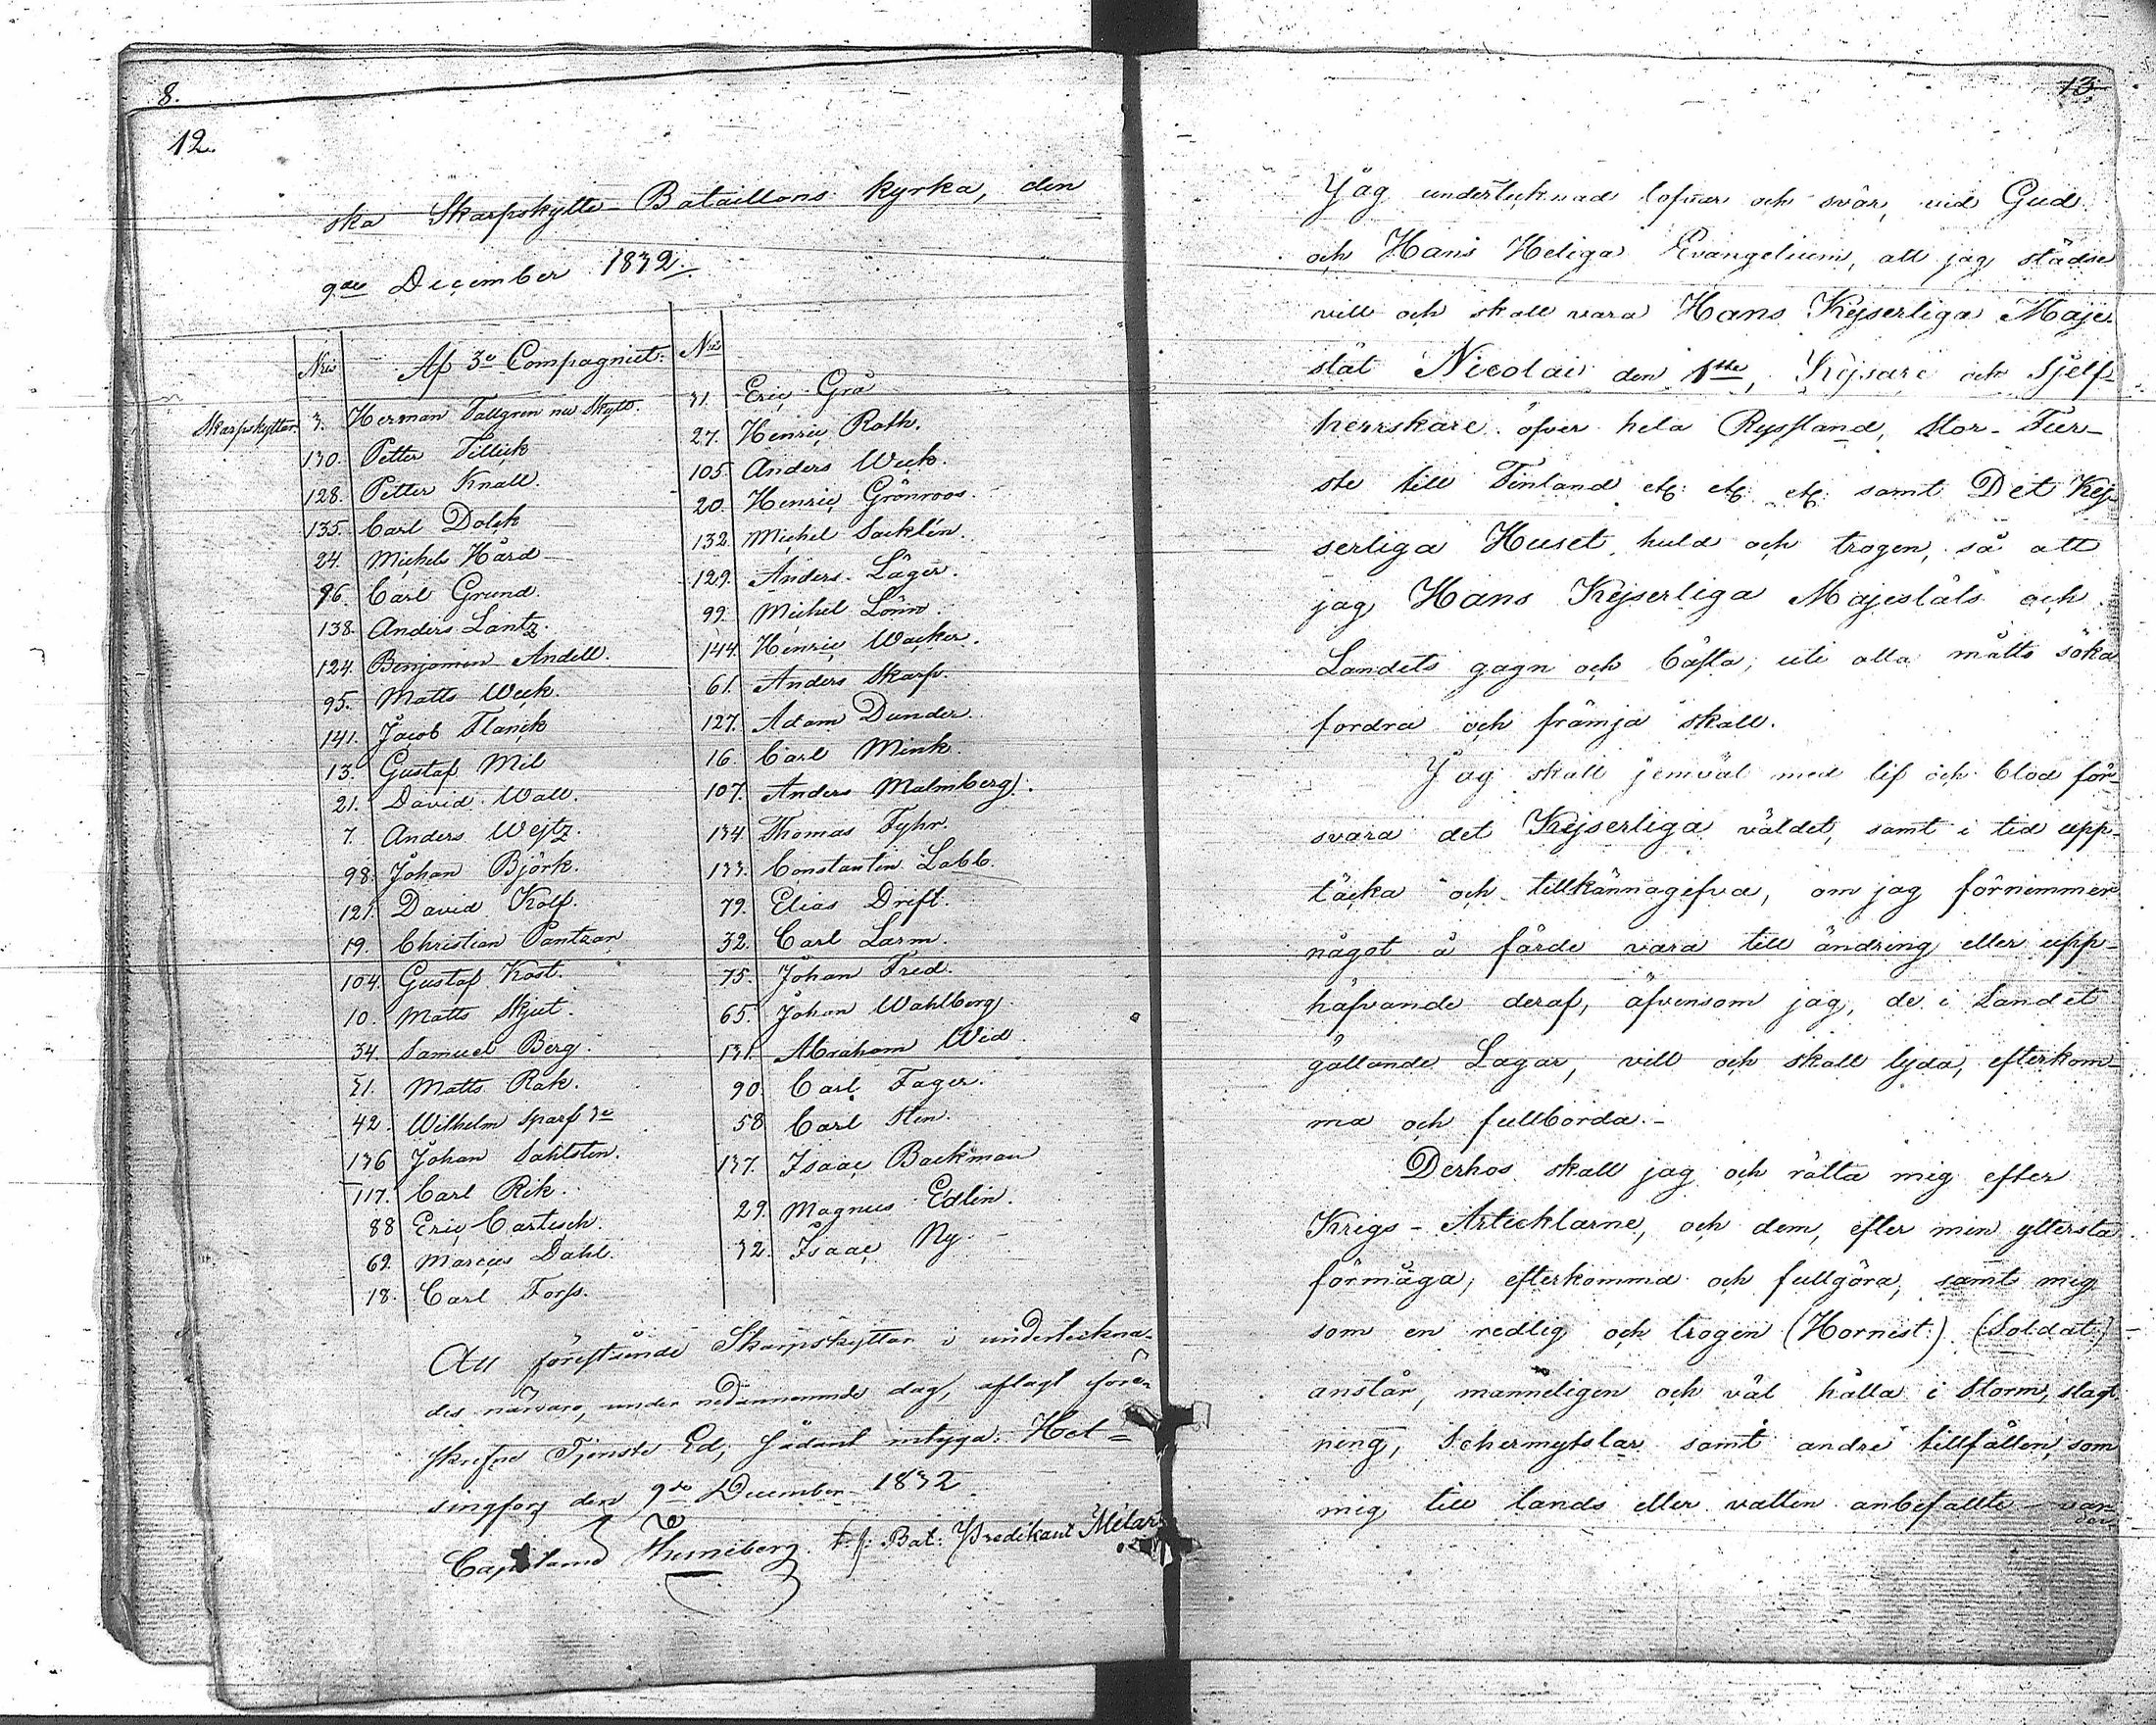 8.
12.
ska Skarpskytte-Bataillons kyrka, den
9de December 1832.
Nris Af 3e Compagniet.
Skarpskyttar. 3. Herman Tallgren nu Skytt.
130. Petter Tillick
128. Petter Knall.
135. Carl Dolck
24. Michel Hård
96. Carl Grund.
138. Anders Lantz.
124. Benjamin Andell.
95. Matts Week.
141. Jacob Flanck
13. Gustaf Mil
21. David Wall.
7. Anders Wejtz.
98. Johan Björk.
121. David Kolf.
19. Christian Pantzar
104. Gustaf Kost.
10. Matts Skjut.
34. Samuel Berg.
51. Matts Rak.
42. Wilhelm Sparf 3e
136 Johan Sahlsten.
117. Carl Rik.
88 Eric Cartesch.
69. Marcus Dahl.
18. Carl Forss.
Nris
31. Eric Grå
27. Henric Roth.
105. Anders Week.
20. Henric Grönroos.
132. Michel Sacklén.
129. Anders Läger.
99. Michel Lönn.
144. Henric Wacker.
61. Anders Skarp.
127. Adam Dunder.
16. Carl Mink.
107. Anders Malmberg.
134. Thomas Fyhr.
133. Constantin Labb.
79. Elias Drift.
32. Carl Larm.
75. Johan Fred.
65. Johan Wahlberg
131. Abraham Wid.
90. Carl Fager.
58 Carl Sten.
137. Isaac Backman
29. Magnus Edlin.
72. Isaac Ny.
Att förestående Skarpskyttar i undertekna-
des närvaro, under nedannämnde dag, aflagt före-
skrefne Tjenste Ed, sådant intyga. Hel=
singfors den 9de December 1832.
Thuneberg. t.f. Bat: Predikant
13
Jag undertecknad lofvar och svär, vid Gud
och Hans Heliga Evangelium, att jag städse
vill och skall vara Hans Kejserliga Maje-
stät Nicolai den 1ste, Kejsare och Sjelf-
herrskare öfver hela Ryssland, Stor-Fur-
ste till Finland etc: etc: etc: samt Det Kej-
serliga Huset, huld och trogen, så att
jag Hans Kejserliga Majestäts och
Landets gagn och bästa, uti alla måtto söka
fordra och främja skall.
Jag skall jemväl med lif och blod för-
svara det Kejserliga väldet, samt i tid upp-
täcka och tillkännagifva, om jag förnimmer
något å färde vara till ändring eller upp-
häfvande deraf, äfvensom jag, de i Landet
gällande Lagar, vill och skall lyda, efterkom-
ma och fullborda.-
Derhos skall jag och rätta mig efter
Krigs-Artecklarne, och dem, efter min yttersta
förmåga, efterkomma och fullgöra, samt mig
som en redlig och trogen (Hornist:) (Soldat:)
anstår, manneligen och väl hålla i Storm, slagt
ning, Schermytslar samt andre tillfällen, som
mig till lands eller vatten anbefallte var-
der